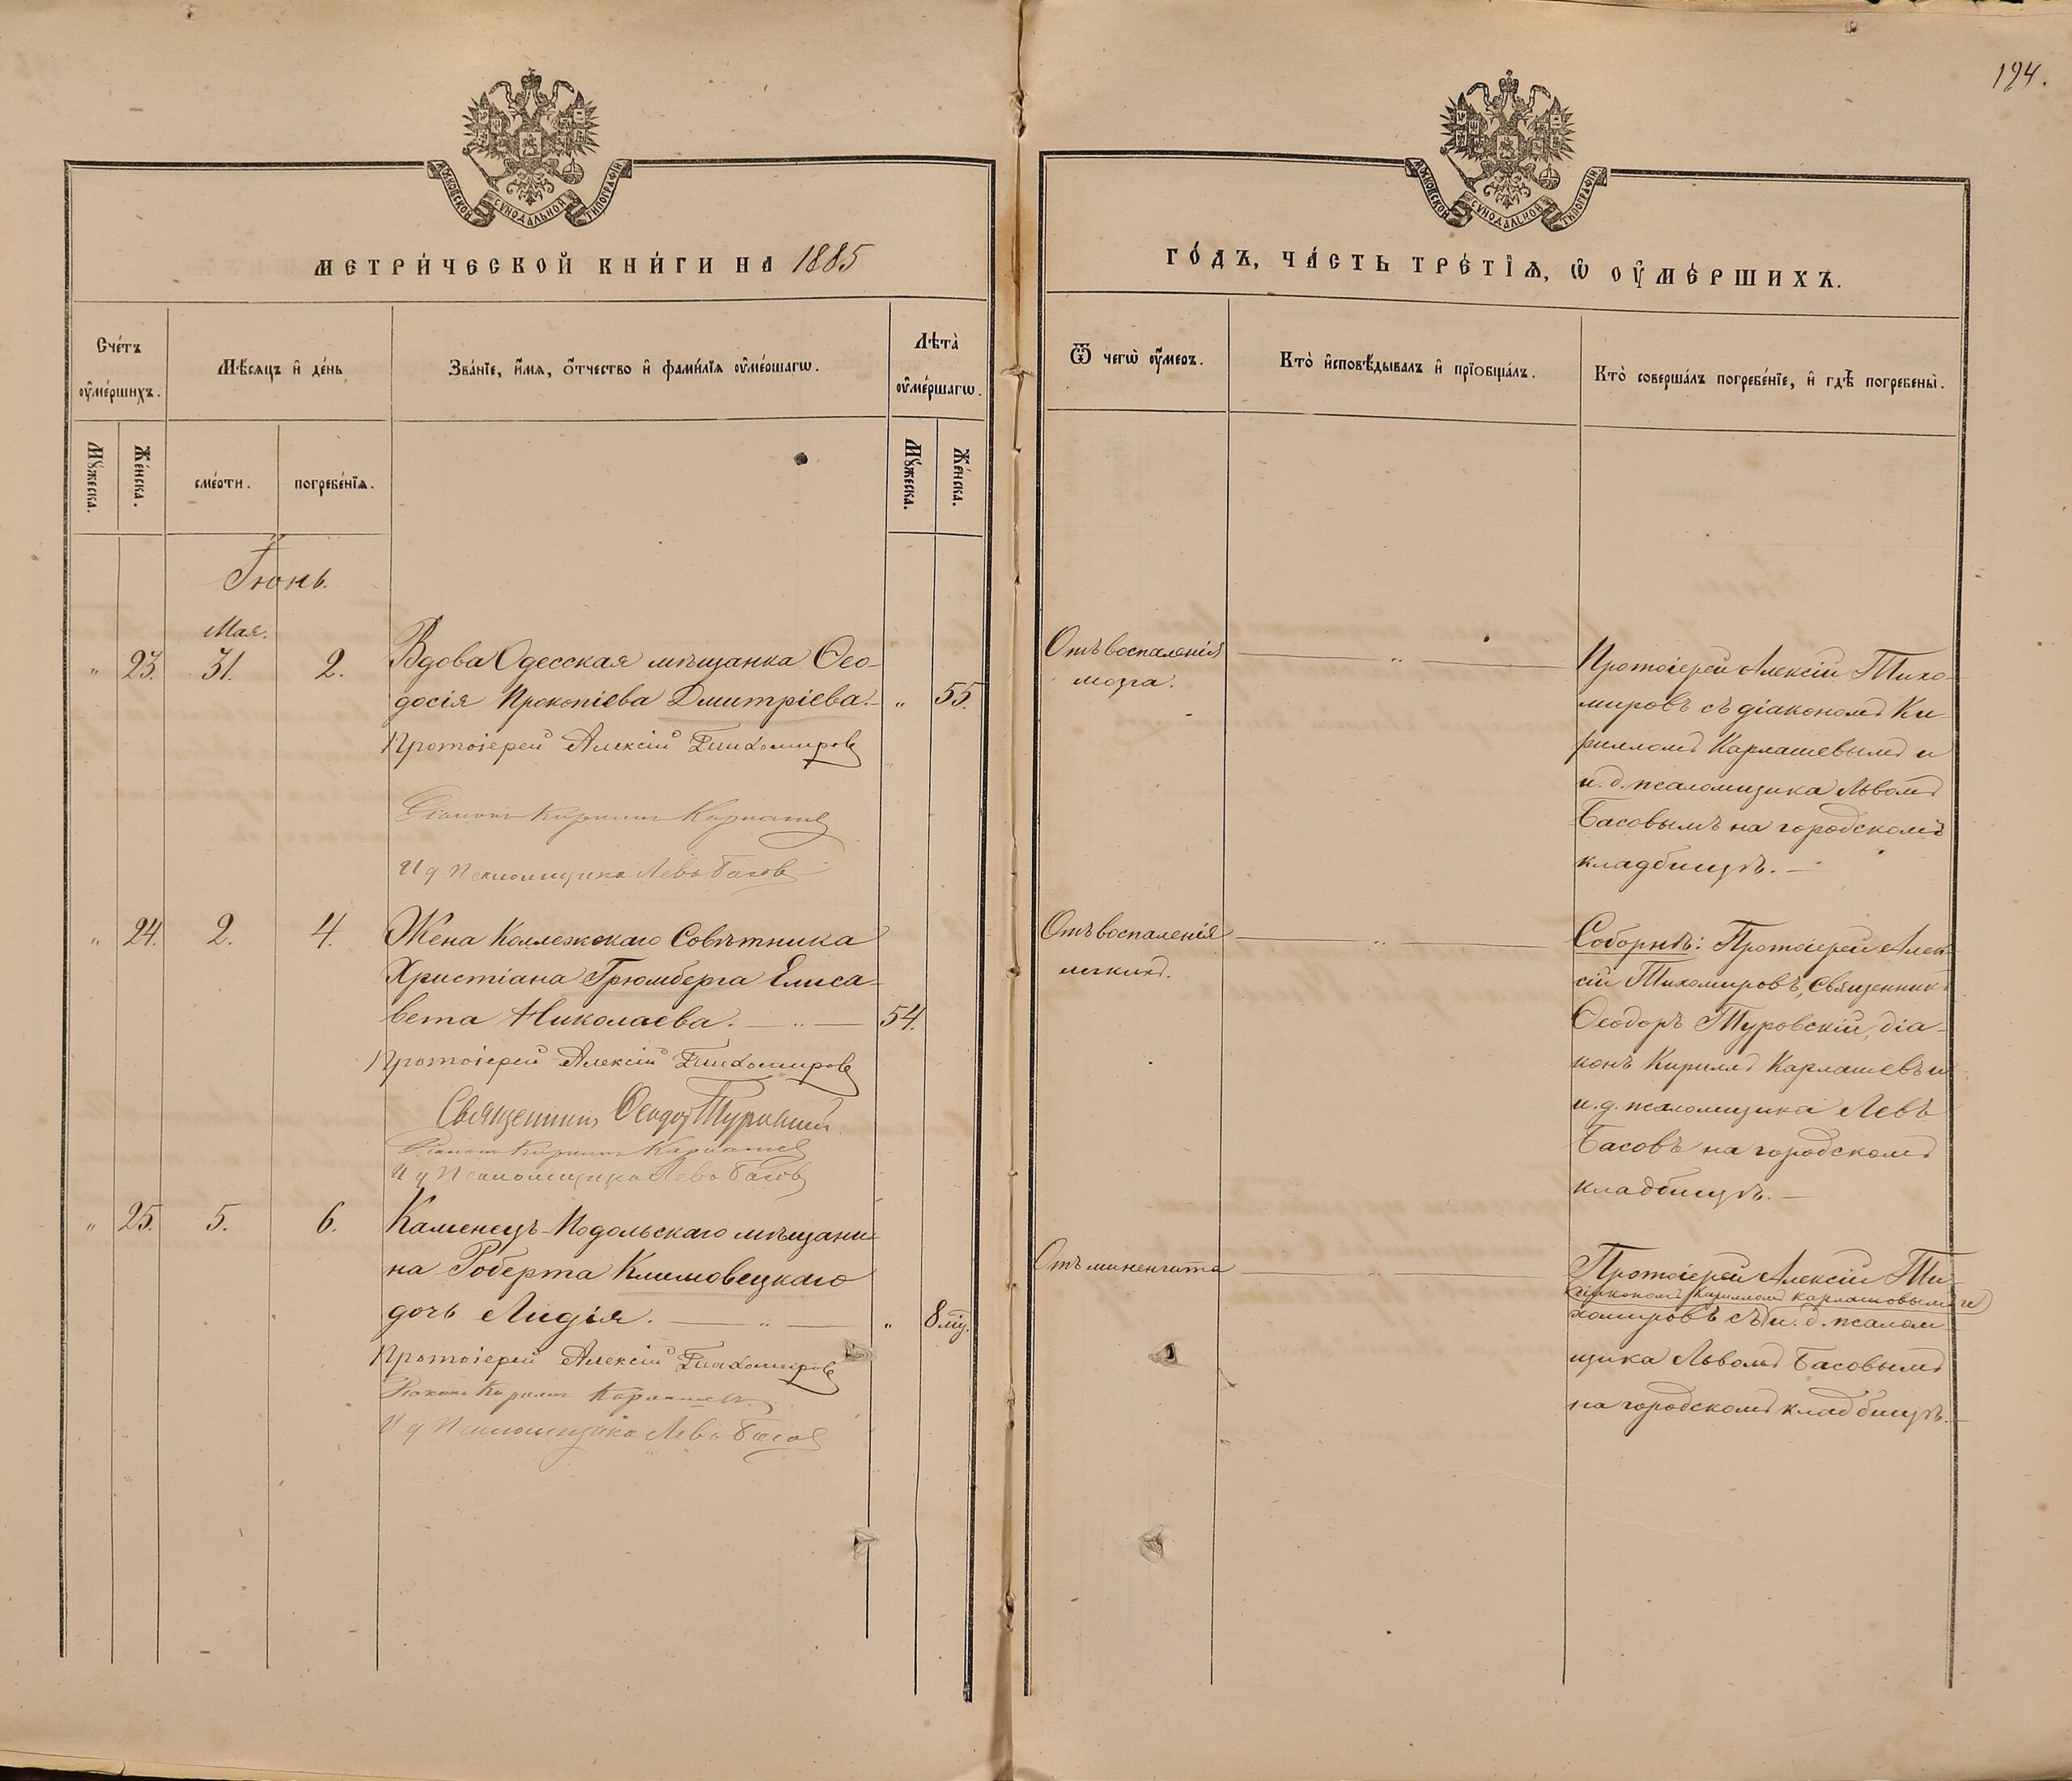 194.
МОСКОВСКОЙ СѴНОДАЛЬНОЙ ТИПОГРАФІИ
МОСКОВСКОЙ СѴНОДАЛЬНОЙ ТИПОГРАФІИ
МЕТРИ́ЧЕСКОЙ КНИ́ГИ НА 1885
ГО́ДЪ, ЧА́СТЬ ТРЕ́ТЇѦ, Ѡ҆ ОУ҆МЕ́РШИХЪ.
Сче́тъ оу҆ме́ршихъ.
Мѣ́сѧцъ и҆ де́нь
Зва́нїе, и҆́мѧ, ѻ҆́тчество и҆ фами́лїѧ оу҆ме́ршагѡ.
Лѣта̀ оу҆ме́ршагѡ.
Ѿ чегѡ̀ оу҆́меръ.
Кто̀ и҆сповѣ́дывалъ и҆ прїѻбща́лъ.
Кто̀ соверша́лъ погребе́нїе, и҆ гдѣ̀ погребены̀.
Мꙋ́жеска.
Же́нска.
сме́рти.
погребе́нїѧ.
Мꙋ́жеска.
Же́нска.
Іюнь.
Мая.
" 23. 31. 2. Вдова Одесская мѣщанка Ѳео-
досія Прокопіева Дмитріева. " 55.
Протоіерей Алексій Тихомировъ
Діаконъ Кириллъ Карлашевъ
И д Псаломщика Левъ Басовъ
Отъ воспаленія
мозга.
"
Протоіерей Алексій Тихо-
мировъ съ діакономъ Ки-
рилломъ Карлашевымъ и
и. д. псаломщика Львомъ
Басовымъ на городскомъ
кладбищѣ.
" 24. 2. 4. Жена Коллежскаго Совѣтника
Христіана Грюмберга Елиса-
вета Николаева. " 54.
Протоіерей Алексій Тихомировъ
Священникъ Ѳеодоръ Туровскій
Діаконъ Кириллъ Карлашевъ
И д Псаломщика Левъ Басовъ
Отъ воспаленія
легкихъ.
"
Соборнѣ: Протоіерей Алек-
сій Тихомировъ, Священникъ
Ѳеодоръ Туровскій, діа-
конъ Кириллъ Карлашевъ и
и. д. псаломщика Левъ
Басовъ на городскомъ
кладбищѣ.
" 25. 5. 6. Каменецъ-Подольскаго мѣщани-
на Роберта Климовецкаго
дочь Лидія. " " 8 мц.
Протоіерей Алексій Тихомировъ
Діаконъ Кириллъ Карлашевъ
И д Псаломщика Левъ Басовъ
Отъ миненгита
"
Протоіерей Алексій Ти-
діакономъ Кирилломъ Карлашовымъ и
хомировъ съ и. д. псалом-
щика Львомъ Басовымъ
на городскомъ кладбищѣ.